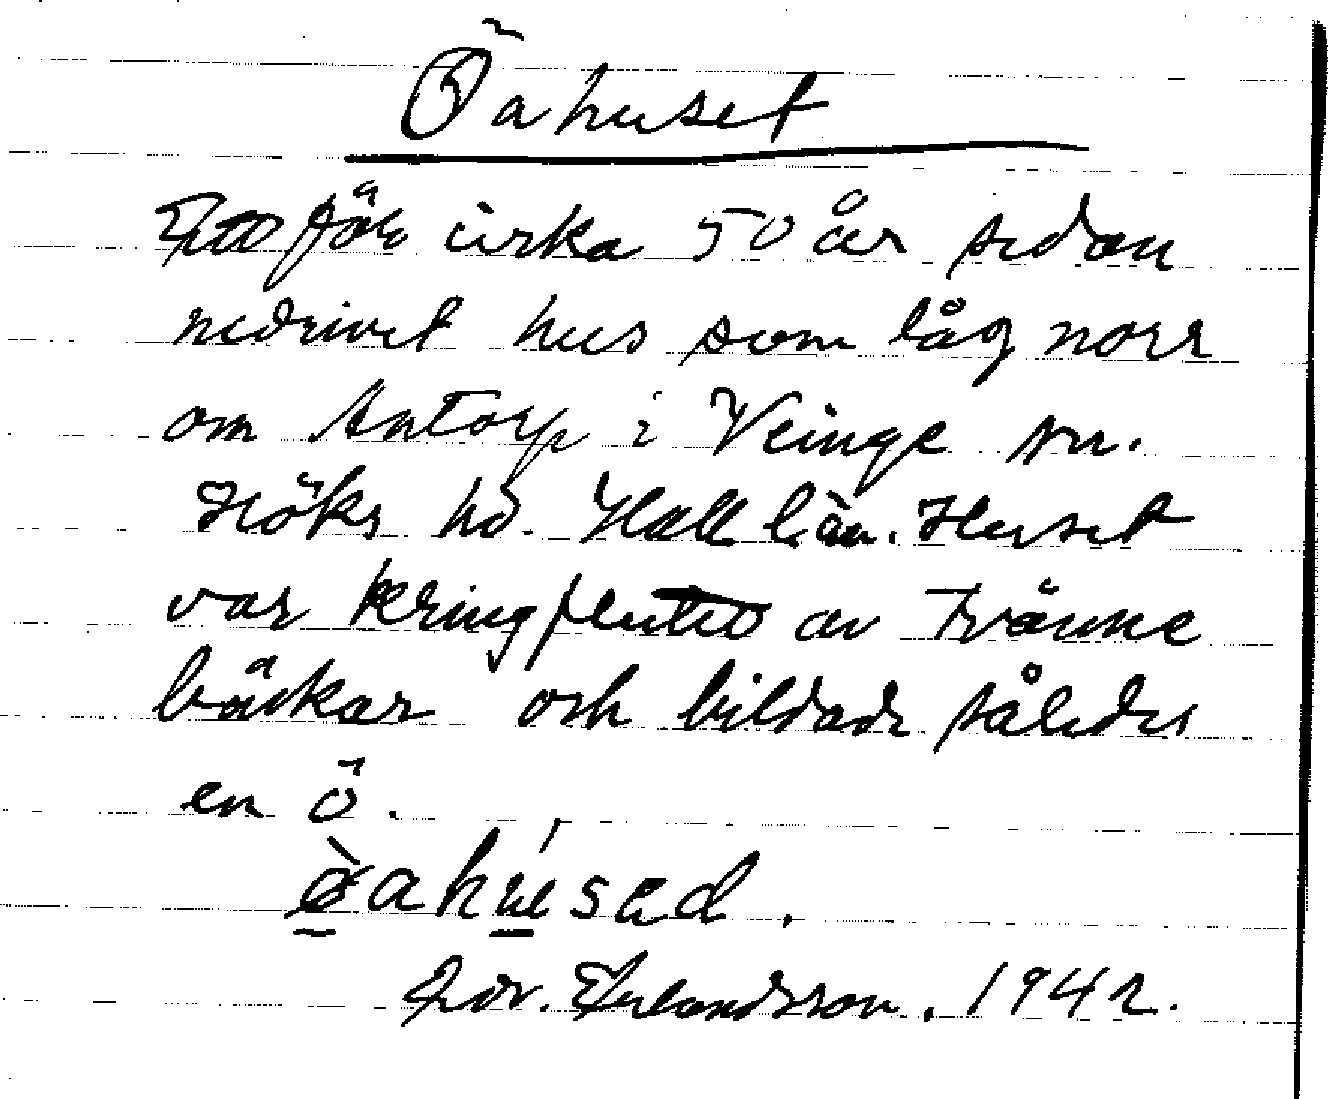 Öahuset
Ett för cirka 50 år sedan
nedrivet hus som låg norr
om Antorp i Veinge sn.
Höks hd. Hall län. Huset
var kringflutet av tvänne
bäckar och bildade således
en ö.
ø̀ahúsəd.
Erlandsson. 1942.